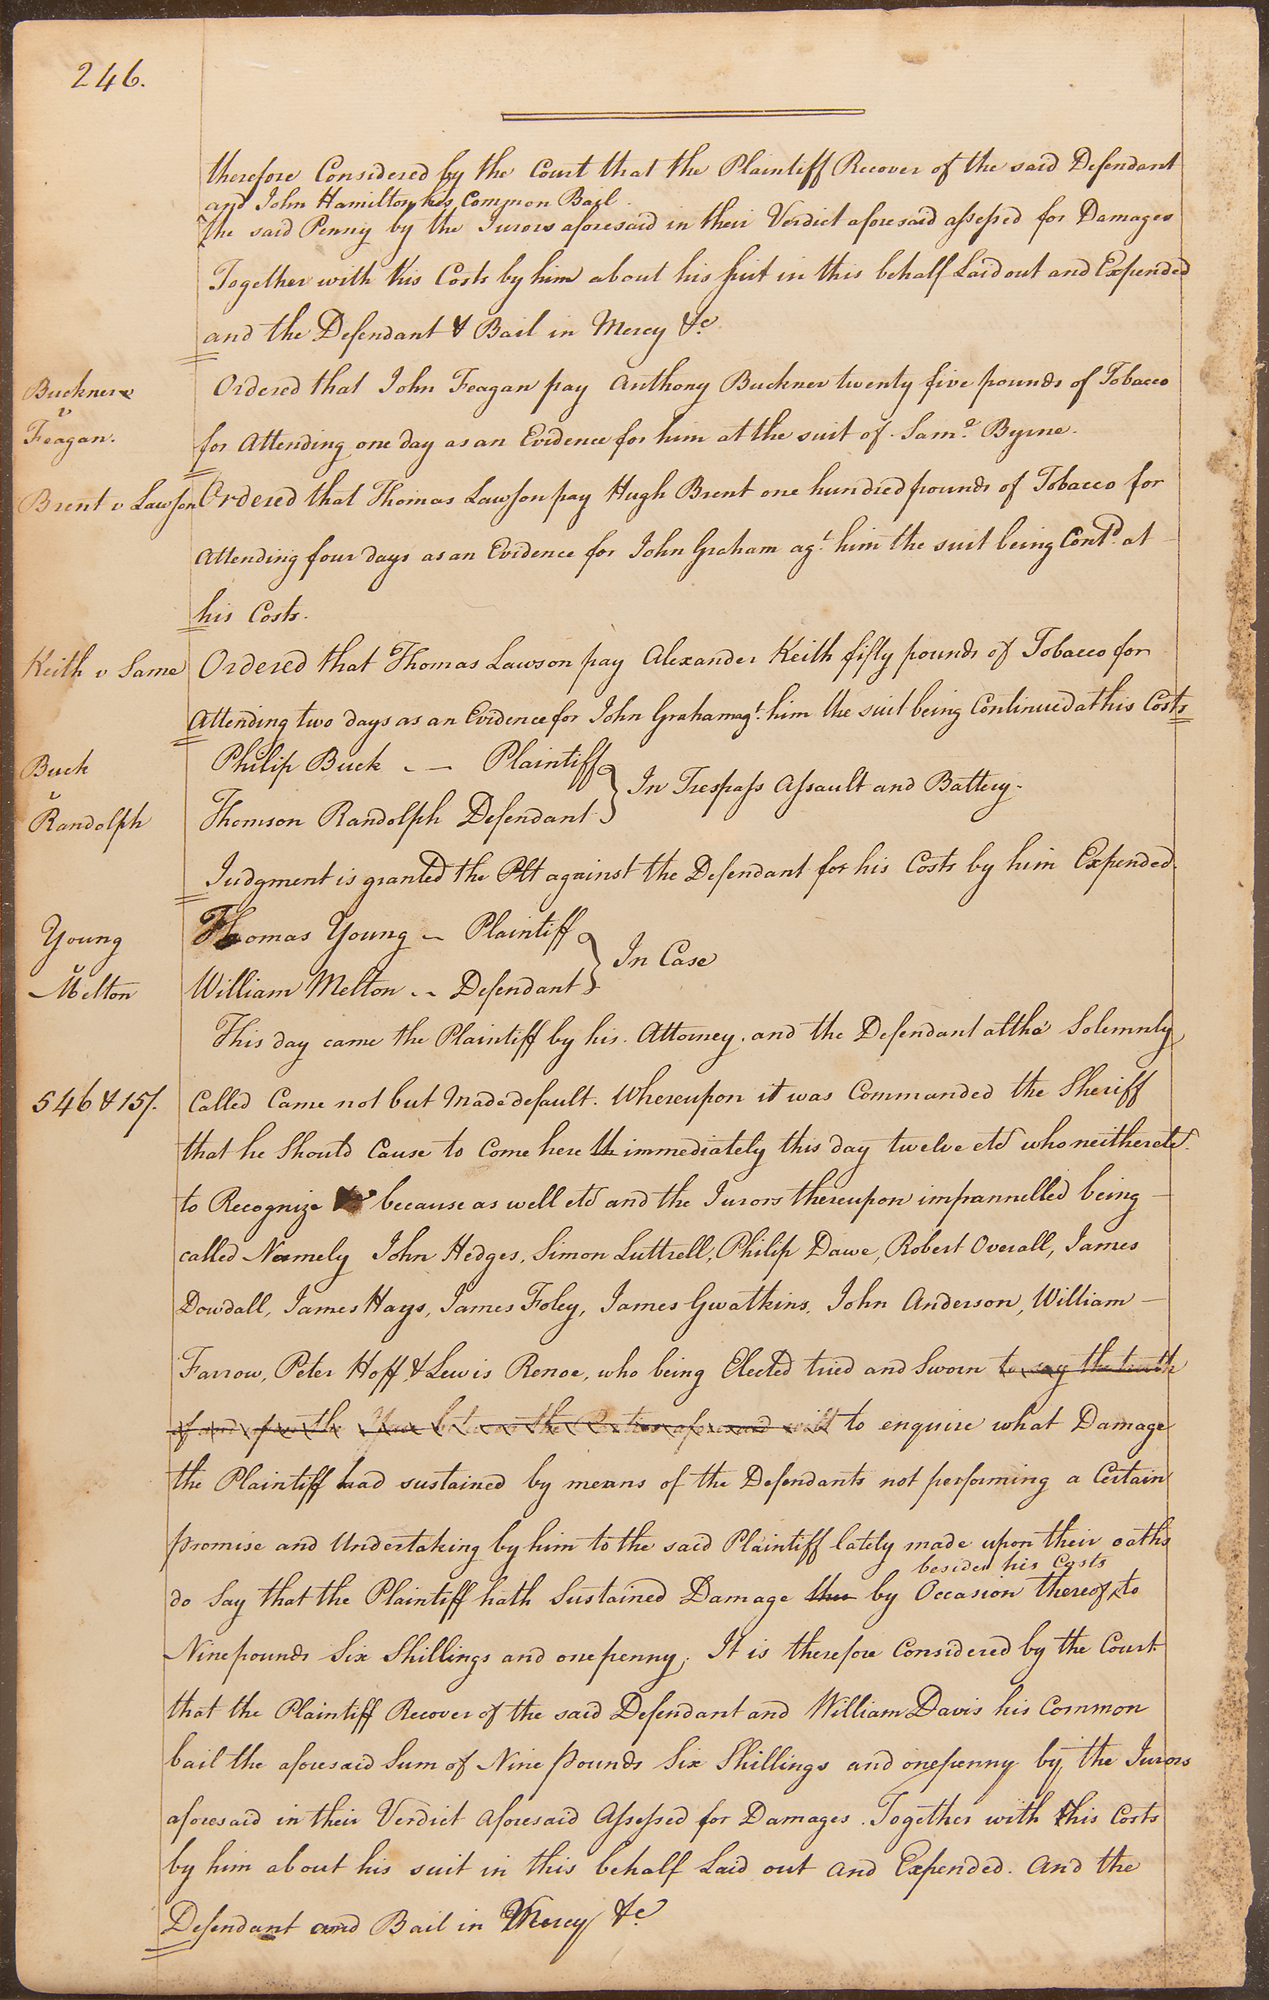 246.
therefore Considered by the Court that the Plaintiff Recover of the said Defendant
and John Hamilton his Common Bail
the said Penny by the Jurors aforesaid in their Verdict aforesaid assessed for Damages
Together with his Costs by him about his suit in this behalf Laid out and Expended
and the Defendant & Bail in Mercy &c
Buckner
v
Feagan.
Ordered that John Feagan pay Anthony Buckner twenty five pounds of Tobacco
for Attending one day as an Evidence for him at the suit of Saml Byrne.
Brent v Lawson
Ordered that Thomas Lawson pay Hugh Brent one hundred pounds of Tobacco for
Attending four days as an Evidence for John Graham agt him the suit being Contd at
his Costs.
Keith v Same
Ordered that Thomas Lawson pay Alexander Keith fifty pounds of Tobacco for
Attending two days as an Evidence for John Graham agt him the suit being Continued at his Costs
Buck
v
Randolph
Philip Buck - - Plaintiff
Thomson Randolph Defendant
In Trespass Assault and Battery.
Judgment is granted the Plt against the Defendant for his Costs by him Expended.
Young
v
Melton
Thomas Young - Plaintiff
William Melton - - Defendant
In Case
This day came the Plaintiff by his Attorney. and the Defendant altho' Solemnly
546 & 15/.
Called Came not but Made default. Whereupon it was Commanded the Sheriff
that he Should Cause to Come here immediately this day twelve etc who neither etc.
to Recognize because as well etc and the Jurors thereupon impannelled being
called Namely John Hedges, Simon Luttrell, Philip Dawe, Robert Overall, James
Dowdall, James Hays, James Foley, James Gwatkins, John Anderson, William
Farrow, Peter Hoff, & Lewis Renoe, who being Elected tried and Sworn to say the truth
of and upon the Issue between the Parties aforesaid to enquire what Damage
the Plaintiff had sustained by means of the Defendants not performing a Certain
promise and Undertaking by him to the said Plaintiff lately made upon their oaths
besides his Costs
do Say that the Plaintiff hath Sustained Damage by Occasion thereof to
Nine pounds Six Shillings and one penny; It is therefore Considered by the Court
that the Plaintiff Recover of the said Defendant and William Davis his Common
bail the aforesaid Sum of Nine pounds Six Shillings and one penny by the Jurors
aforesaid in their Verdict aforesaid Assessed for Damages. Together with his Costs
by him about his suit in this behalf Laid out and Expended. And the
Defendant and Bail in Mercy &c